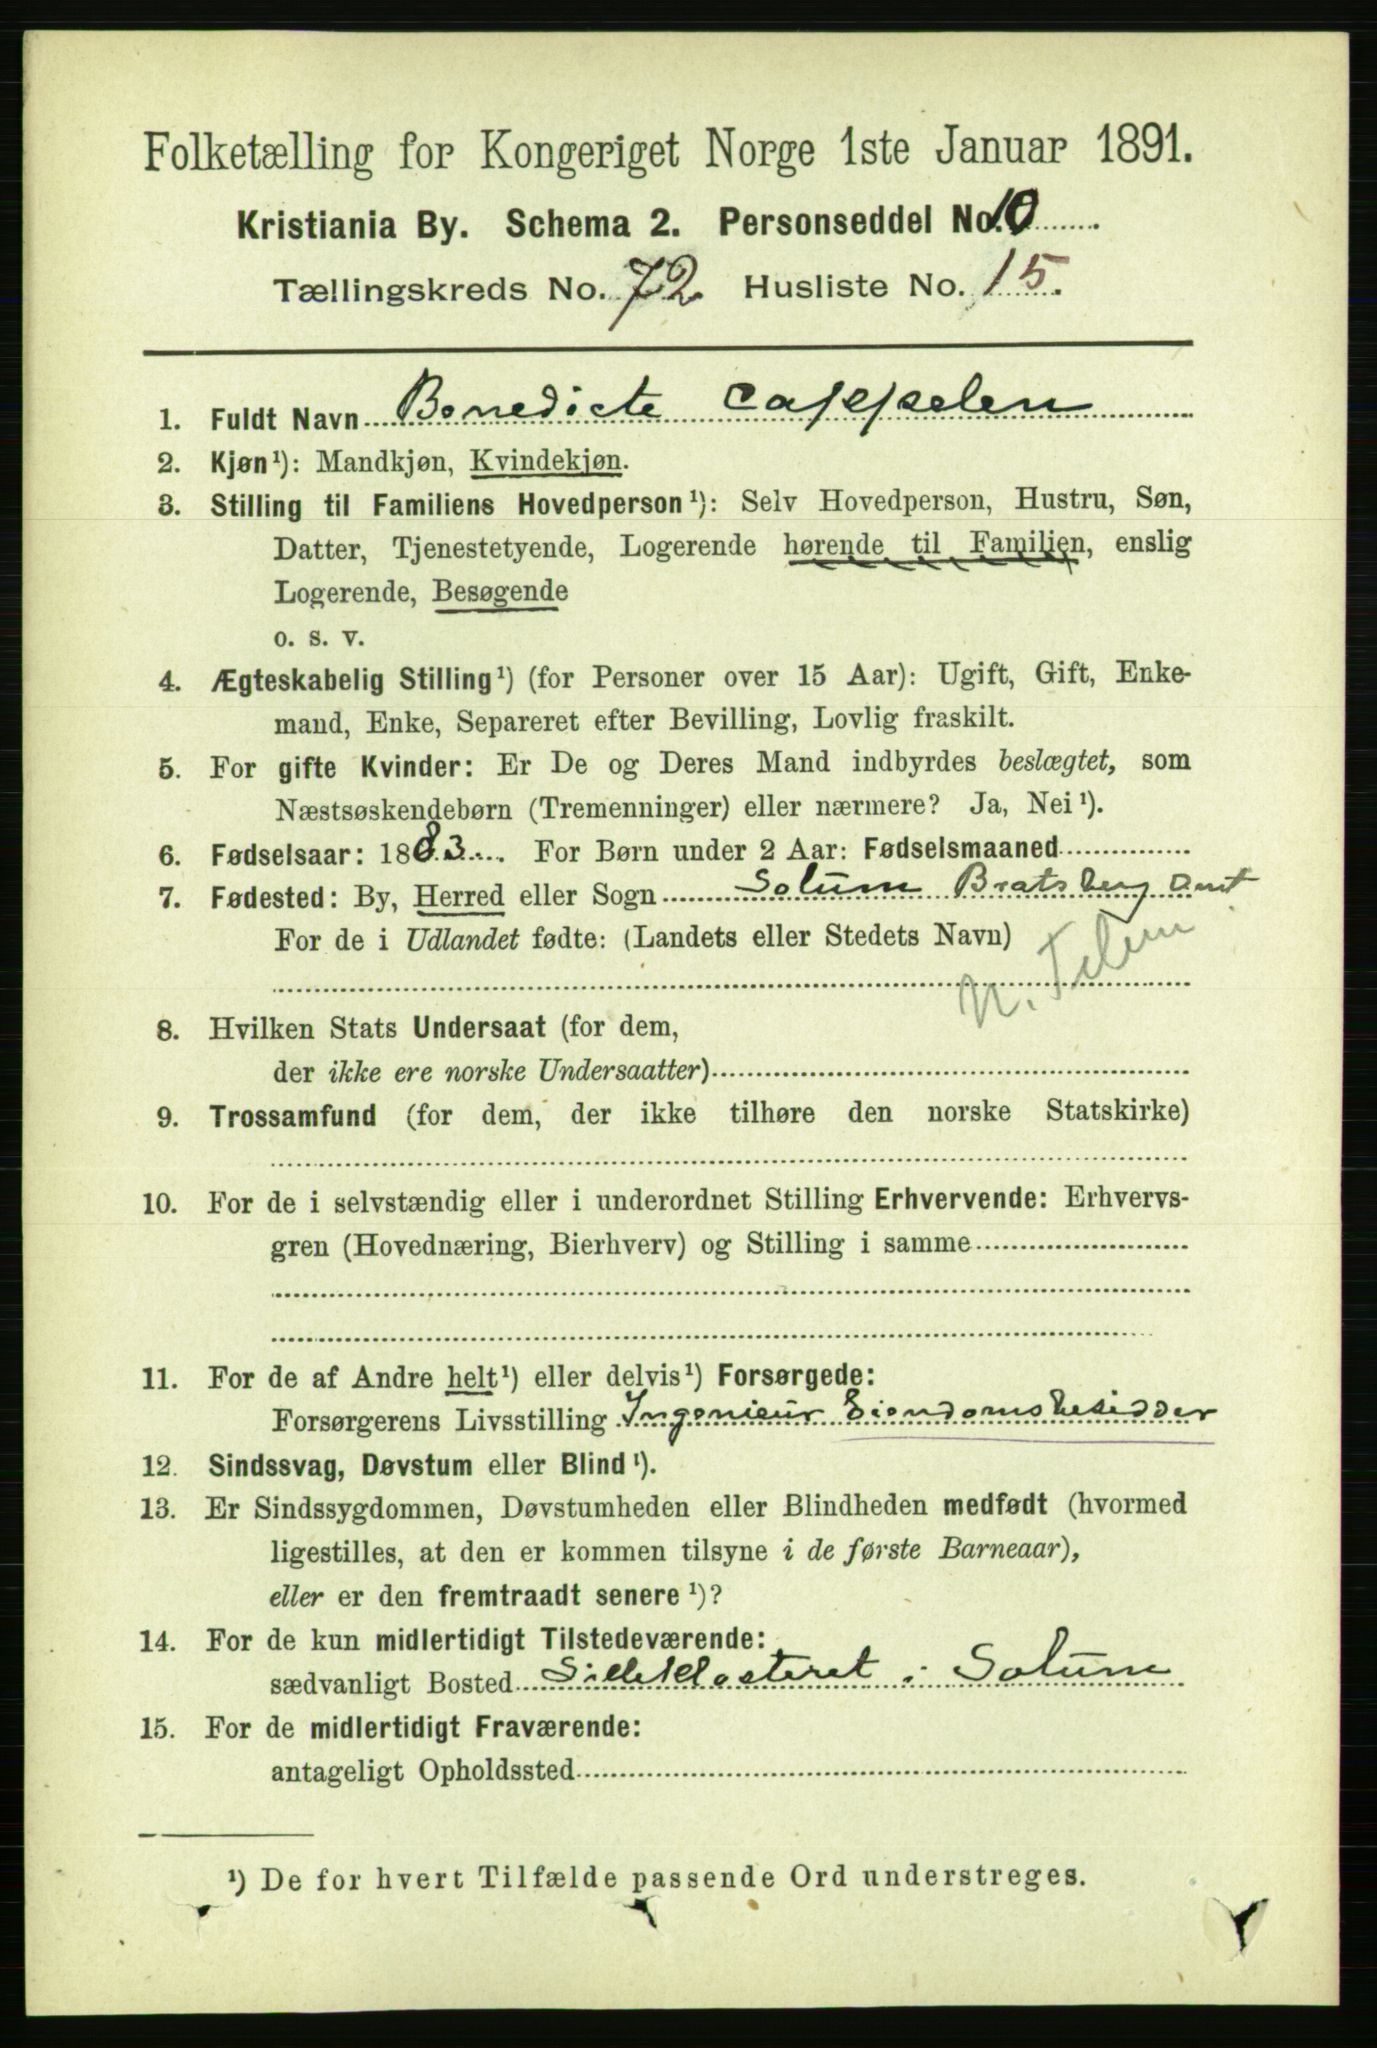 Folketælling for Kongeriget Norge 1ste Januar 1891.
Kristiania By. Schema 2. Personseddel No. 10
Tællingskreds No. 72 Husliste No. 15.
1. Fuldt Navn Benedicte Cappelen
2. Kjøn¹): Mandkjøn, Kvindekjøn.
3. Stilling til Familiens Hovedperson¹): Selv Hovedperson, Hustru, Søn,
Datter, Tjenestetyende, Logerende hørende til Familien, enslig
Logerende, Besøgende
o. s. v.
4. Ægteskabelig Stilling¹) (for Personer over 15 Aar): Ugift, Gift, Enke-
mand, Enke, Separeret efter Bevilling, Lovlig fraskilt.
5. For gifte Kvinder: Er De og Deres Mand indbyrdes beslægtet, som
Næstsøskendebørn (Tremenninger) eller nærmere? Ja, Nei¹).
6. Fødselsaar: 1883. For Børn under 2 Aar: Fødselsmaaned
7. Fødested: By, Herred eller Sogn Solum Bratsberg Amt
For de i Udlandet fødte: (Landets eller Stedets Navn)
8. Hvilken Stats Undersaat (for dem,
der ikke ere norske Undersaatter)
9. Trossamfund (for dem, der ikke tilhøre den norske Statskirke)
10. For de i selvstændig eller i underordnet Stilling Erhvervende: Erhvervs-
gren (Hovednæring, Bierhverv) og Stilling i samme
11. For de af Andre helt¹) eller delvis¹) Forsørgede:
Forsørgerens Livsstilling Ingenieur Eiendomsbesidder
12. Sindssvag, Døvstum eller Blind¹).
13. Er Sindssygdommen, Døvstumheden eller Blindheden medfødt (hvormed
ligestilles, at den er kommen tilsyne i de første Barneaar),
eller er den fremtraadt senere¹)?
14. For de kun midlertidigt Tilstedeværende:
sædvanligt Bosted i Solum
15. For de midlertidigt Fraværende:
antageligt Opholdssted
¹) De for hvert Tilfælde passende Ord understreges.